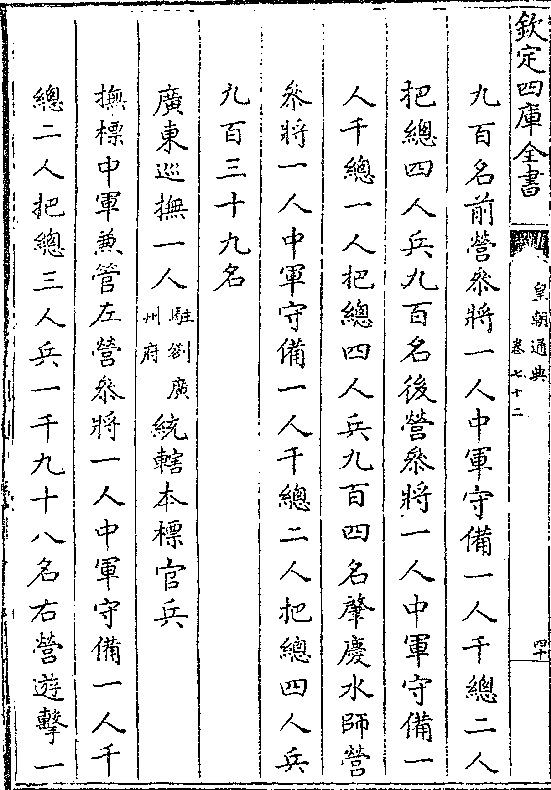 欽定四庫全書
皇朝通典
卷七十二
四十
九百名前營叅將一人中軍守備一人千總二人
把總四人兵九百名後營叅將一人中軍守備一
人千總一人把總四人兵九百四名肇慶水師營
叅將一人中軍守備一人千總二人把總四人兵
九百三十九名
廣東巡撫一人駐劄廣州府統轄本標官兵
撫標中軍兼管左營叅將一人中軍守備一人千
總二人把總三人兵一千九十八名右營遊擊一